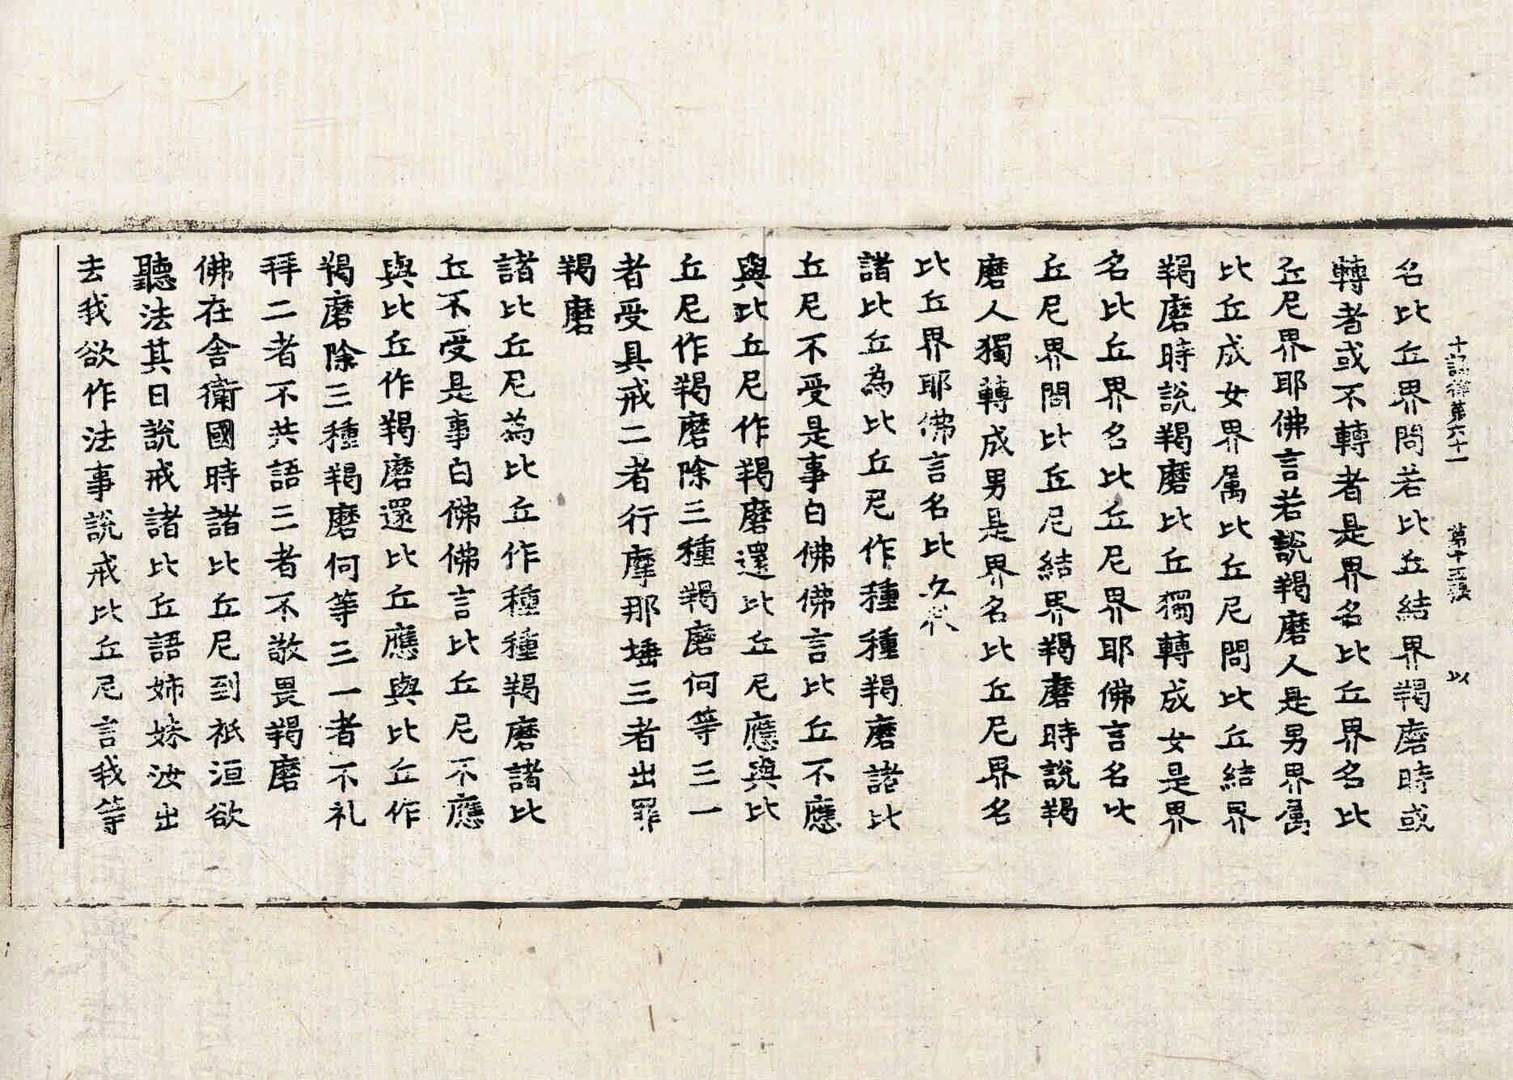 十誦律第六十一 第十三張 以
名比丘界問若比丘結界羯磨時或
轉者或不轉者是界名比丘界名比
丘尼界耶佛言若說羯磨人是男界属
比丘成女界属比丘尼問比丘結界
羯磨時說羯磨比丘獨轉成女是界
名比丘界名比丘尼界耶佛言名比
丘尼界問比丘尼結界羯磨時說羯
磨人獨轉成男是界名比丘尼界名
比丘界耶佛言名比丘界
諸比丘為比丘尼作種種羯磨諸比
丘尼不受是事白佛佛言比丘不應
與比丘尼作羯磨還比丘尼應與比
丘尼作羯磨除三種羯磨何等三一
者受具戒二者行摩那埵三者出罪
羯磨
諸比丘尼為比丘作種種羯磨諸比
丘不受是事白佛佛言比丘尼不應
與比丘作羯磨還比丘應與比丘作
羯磨除三種羯磨何等三一者不礼
拜二者不共語三者不敬畏羯磨
佛在舍衛國時諸比丘尼到祇洹欲
聽法其日說戒諸比丘語姉妹汝出
去我欲作法事說戒比丘尼言我等